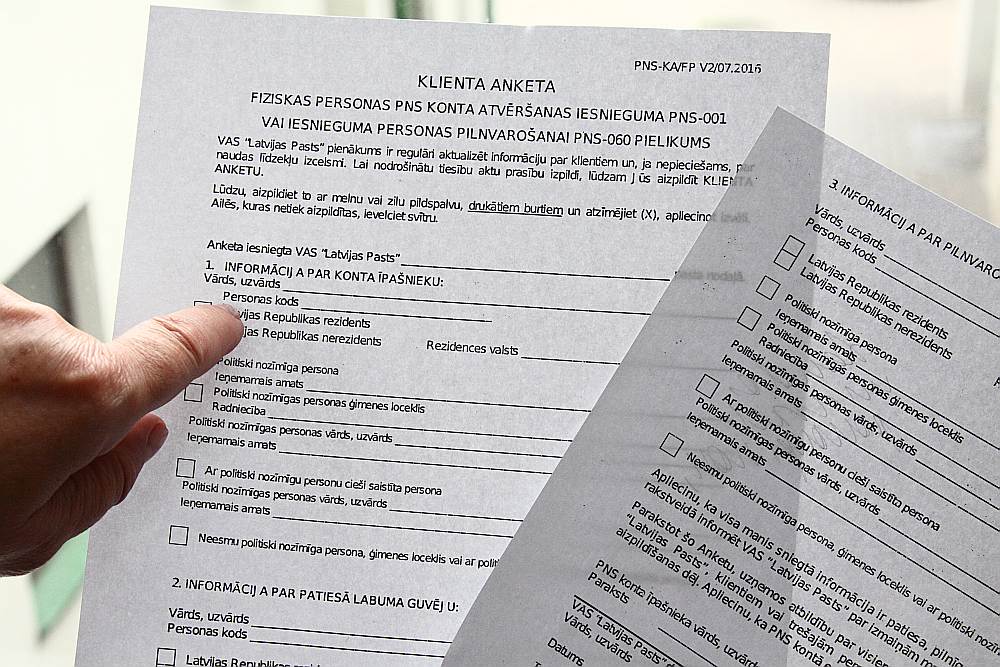 PNS-KA/FP V2/07.2016
KLIENTA ANKETA
FIZISKAS PERSONAS PNS KONTA ATVĒRŠANAS IESNIEGUMA PNS-001
VAI IESNIEGUMA PERSONAS PILNVAROŠANAI PNS-060 PIELIKUMS
VAS "Latvijas Pasts" pienākums ir regulāri aktualizēt informāciju par klientiem un, ja nepieciešams, par
naudas līdzekļu izcelsmi. Lai nodrošinātu tiesību aktu prasību izpildi, lūdzam Jūs aizpildīt KLIENTA
ANKETU.
Lūdzu, aizpildiet to ar melnu vai zilu pildspalvu, drukātiem burtiem un atzīmējiet (X), apliecinot izvēli.
Ailēs, kuras netiek aizpildītas, ievelciet svītru.
Anketa iesniegta VAS "Latvijas Pasts"
pasta nodaļā.
1. INFORMĀCIJA PAR KONTA ĪPAŠNIEKU:
Vārds, uzvārds
Personas kods
Republikas rezidents
Republikas nerezidents
Rezidences valsts
Politiski nozīmīga persona
Ieņemamais amats
Politiski nozīmīgas personas ģimenes loceklis
Radniecība
Politiski nozīmīgas personas vārds, uzvārds
Ieņemamais amats
Ar politiski nozīmīgu personu cieši saistīta persona
Politiski nozīmīgas personas vārds, uzvārds
Ieņemamais amats
Neesmu politiski nozīmīga persona, ģimenes loceklis vai ar
2. INFORMĀCIJA PAR PATIESĀ LABUMA GUVĒJU:
Vārds, uzvārds
Personas kods
Latvijas Republikas
3. INFORMĀCIJA PAR
Vārds, uzvārds
Personas kods
Latvijas Republikas rezidents
Latvijas Republikas nerezidents
Politiski nozīmīga persona
Ieņemamais amats
Politiski nozīmīgas personas ģimenes loceklis
Radniecība
Politiski nozīmīgas personas vārds, uzvārds
Ieņemamais amats
Ar politiski nozīmīgu personu cieši saistīta persona
Politiski nozīmīgas personas vārds, uzvārds
Ieņemamais amats
Neesmu politiski nozīmīga persona, ģimenes loceklis vai ar politiski
Apliecinu, ka visa manis sniegtā informācija ir patiesa,
rakstveidā informēt VAS "Latvijas Pasts" par izmaiņām
Parakstot šo Anketu, uzņemos atbildību par
"Latvijas Pasts", klientiem vai trešajām
aizpildīšanas dēļ. Apliecinu, ka PNS
PNS konta īpašnieka vārds,
Paraksts
VAS "Latvijas Pasts"
Vārds, uzvārds
Datums